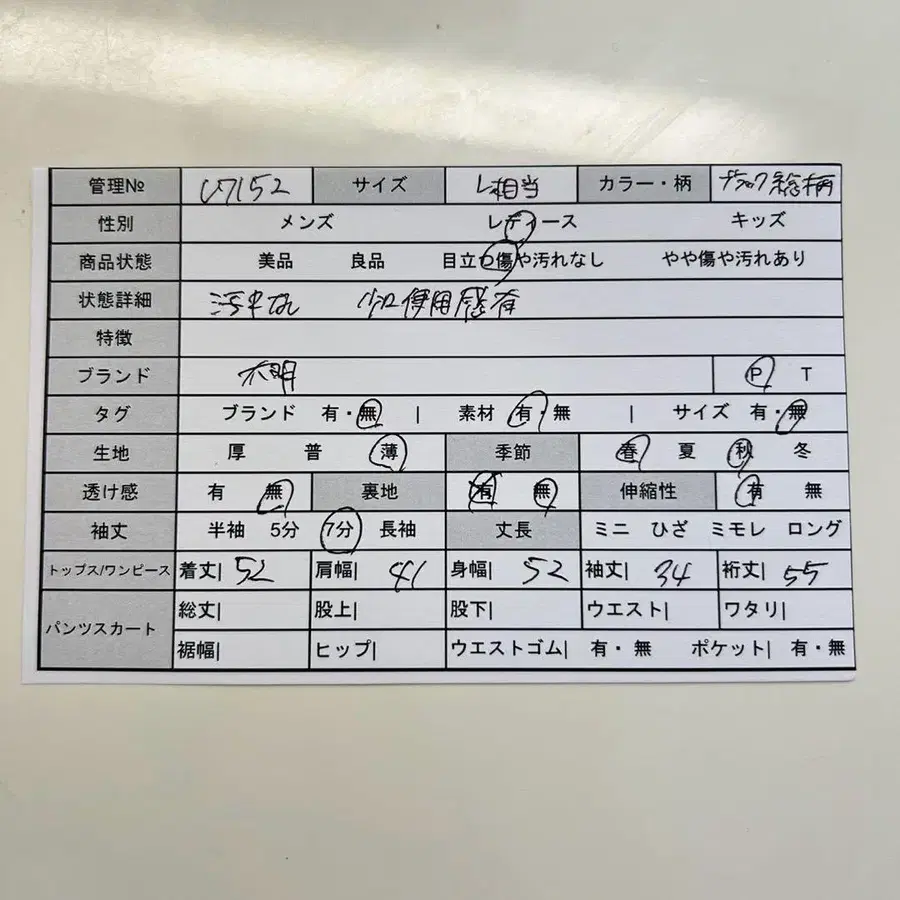 管理№ U7152 サイズ L相当 カラー・柄 ブラック総柄
性別 メンズ レディース キッズ
商品状態 美品 良品 目立つ傷や汚れなし やや傷や汚れあり
状態詳細 汚れなし 少し使用感有
特徴
ブランド 不明 P T
タグ ブランド 有・無 | 素材 有・無 | サイズ 有・無
生地 厚 普 薄 季節 春 夏 秋 冬
透け感 有 無 裏地 有 無 伸縮性 有 無
袖丈 半袖 5分 7分 長袖 丈長 ミニ ひざ ミモレ ロング
トップス/ワンピース 着丈| 52 肩幅| 41 身幅| 52 袖丈| 34 裄丈| 55
パンツスカート 総丈| 股上| 股下| ウエスト| ワタリ|
裾幅| ヒップ| ウエストゴム| 有・無 ポケット| 有・無